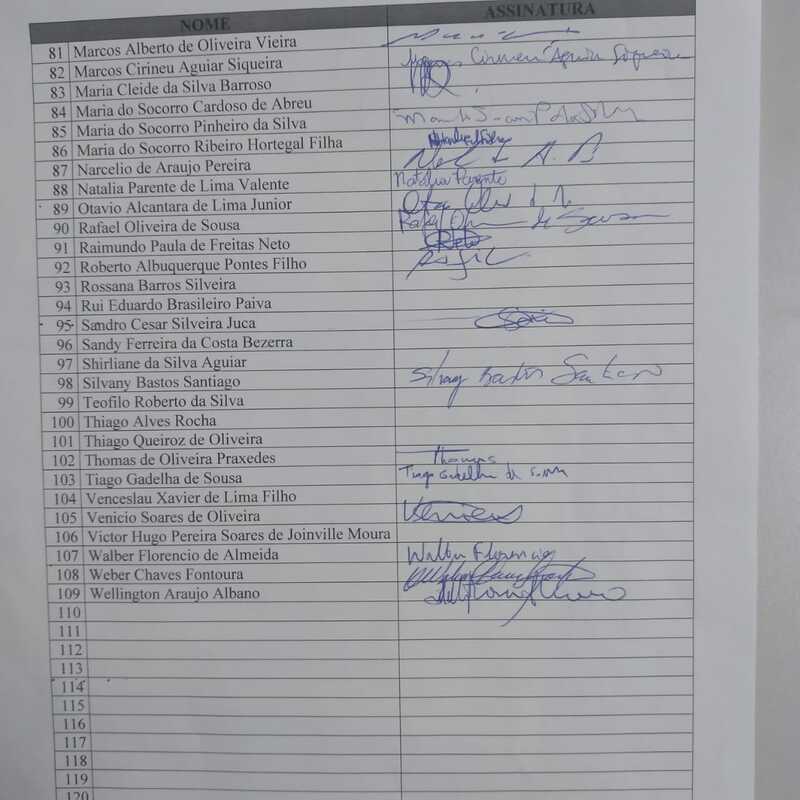 NOME ASSINATURA
81 Marcos Alberto de Oliveira Vieira
82 Marcos Cirineu Aguiar Siqueira Marcos Cirineu Aguiar Siqueira
83 Maria Cleide da Silva Barroso
84 Maria do Socorro Cardoso de Abreu
85 Maria do Socorro Pinheiro da Silva
86 Maria do Socorro Ribeiro Hortegal Filha
87 Narcelio de Araujo Pereira
88 Natalia Parente de Lima Valente Natalia Parente
89 Otavio Alcantara de Lima Junior
90 Rafael Oliveira de Sousa de Sousa
91 Raimundo Paula de Freitas Neto Neto
92 Roberto Albuquerque Pontes Filho
93 Rossana Barros Silveira
94 Rui Eduardo Brasileiro Paiva
95 Sandro Cesar Silveira Juca
96 Sandy Ferreira da Costa Bezerra
97 Shirliane da Silva Aguiar
98 Silvany Bastos Santiago Silvany Bastos Santiago
99 Teofilo Roberto da Silva
100 Thiago Alves Rocha
101 Thiago Queiroz de Oliveira
102 Thomas de Oliveira Praxedes Thomas
103 Tiago Gadelha de Sousa Tiago Gadelha de Sousa
104 Venceslau Xavier de Lima Filho
105 Venicio Soares de Oliveira
106 Victor Hugo Pereira Soares de Joinville Moura
107 Walber Florencio de Almeida Walber Florencio
108 Weber Chaves Fontoura
109 Wellington Araujo Albano
110
111
112
113
114
115
116
117
118
119
120